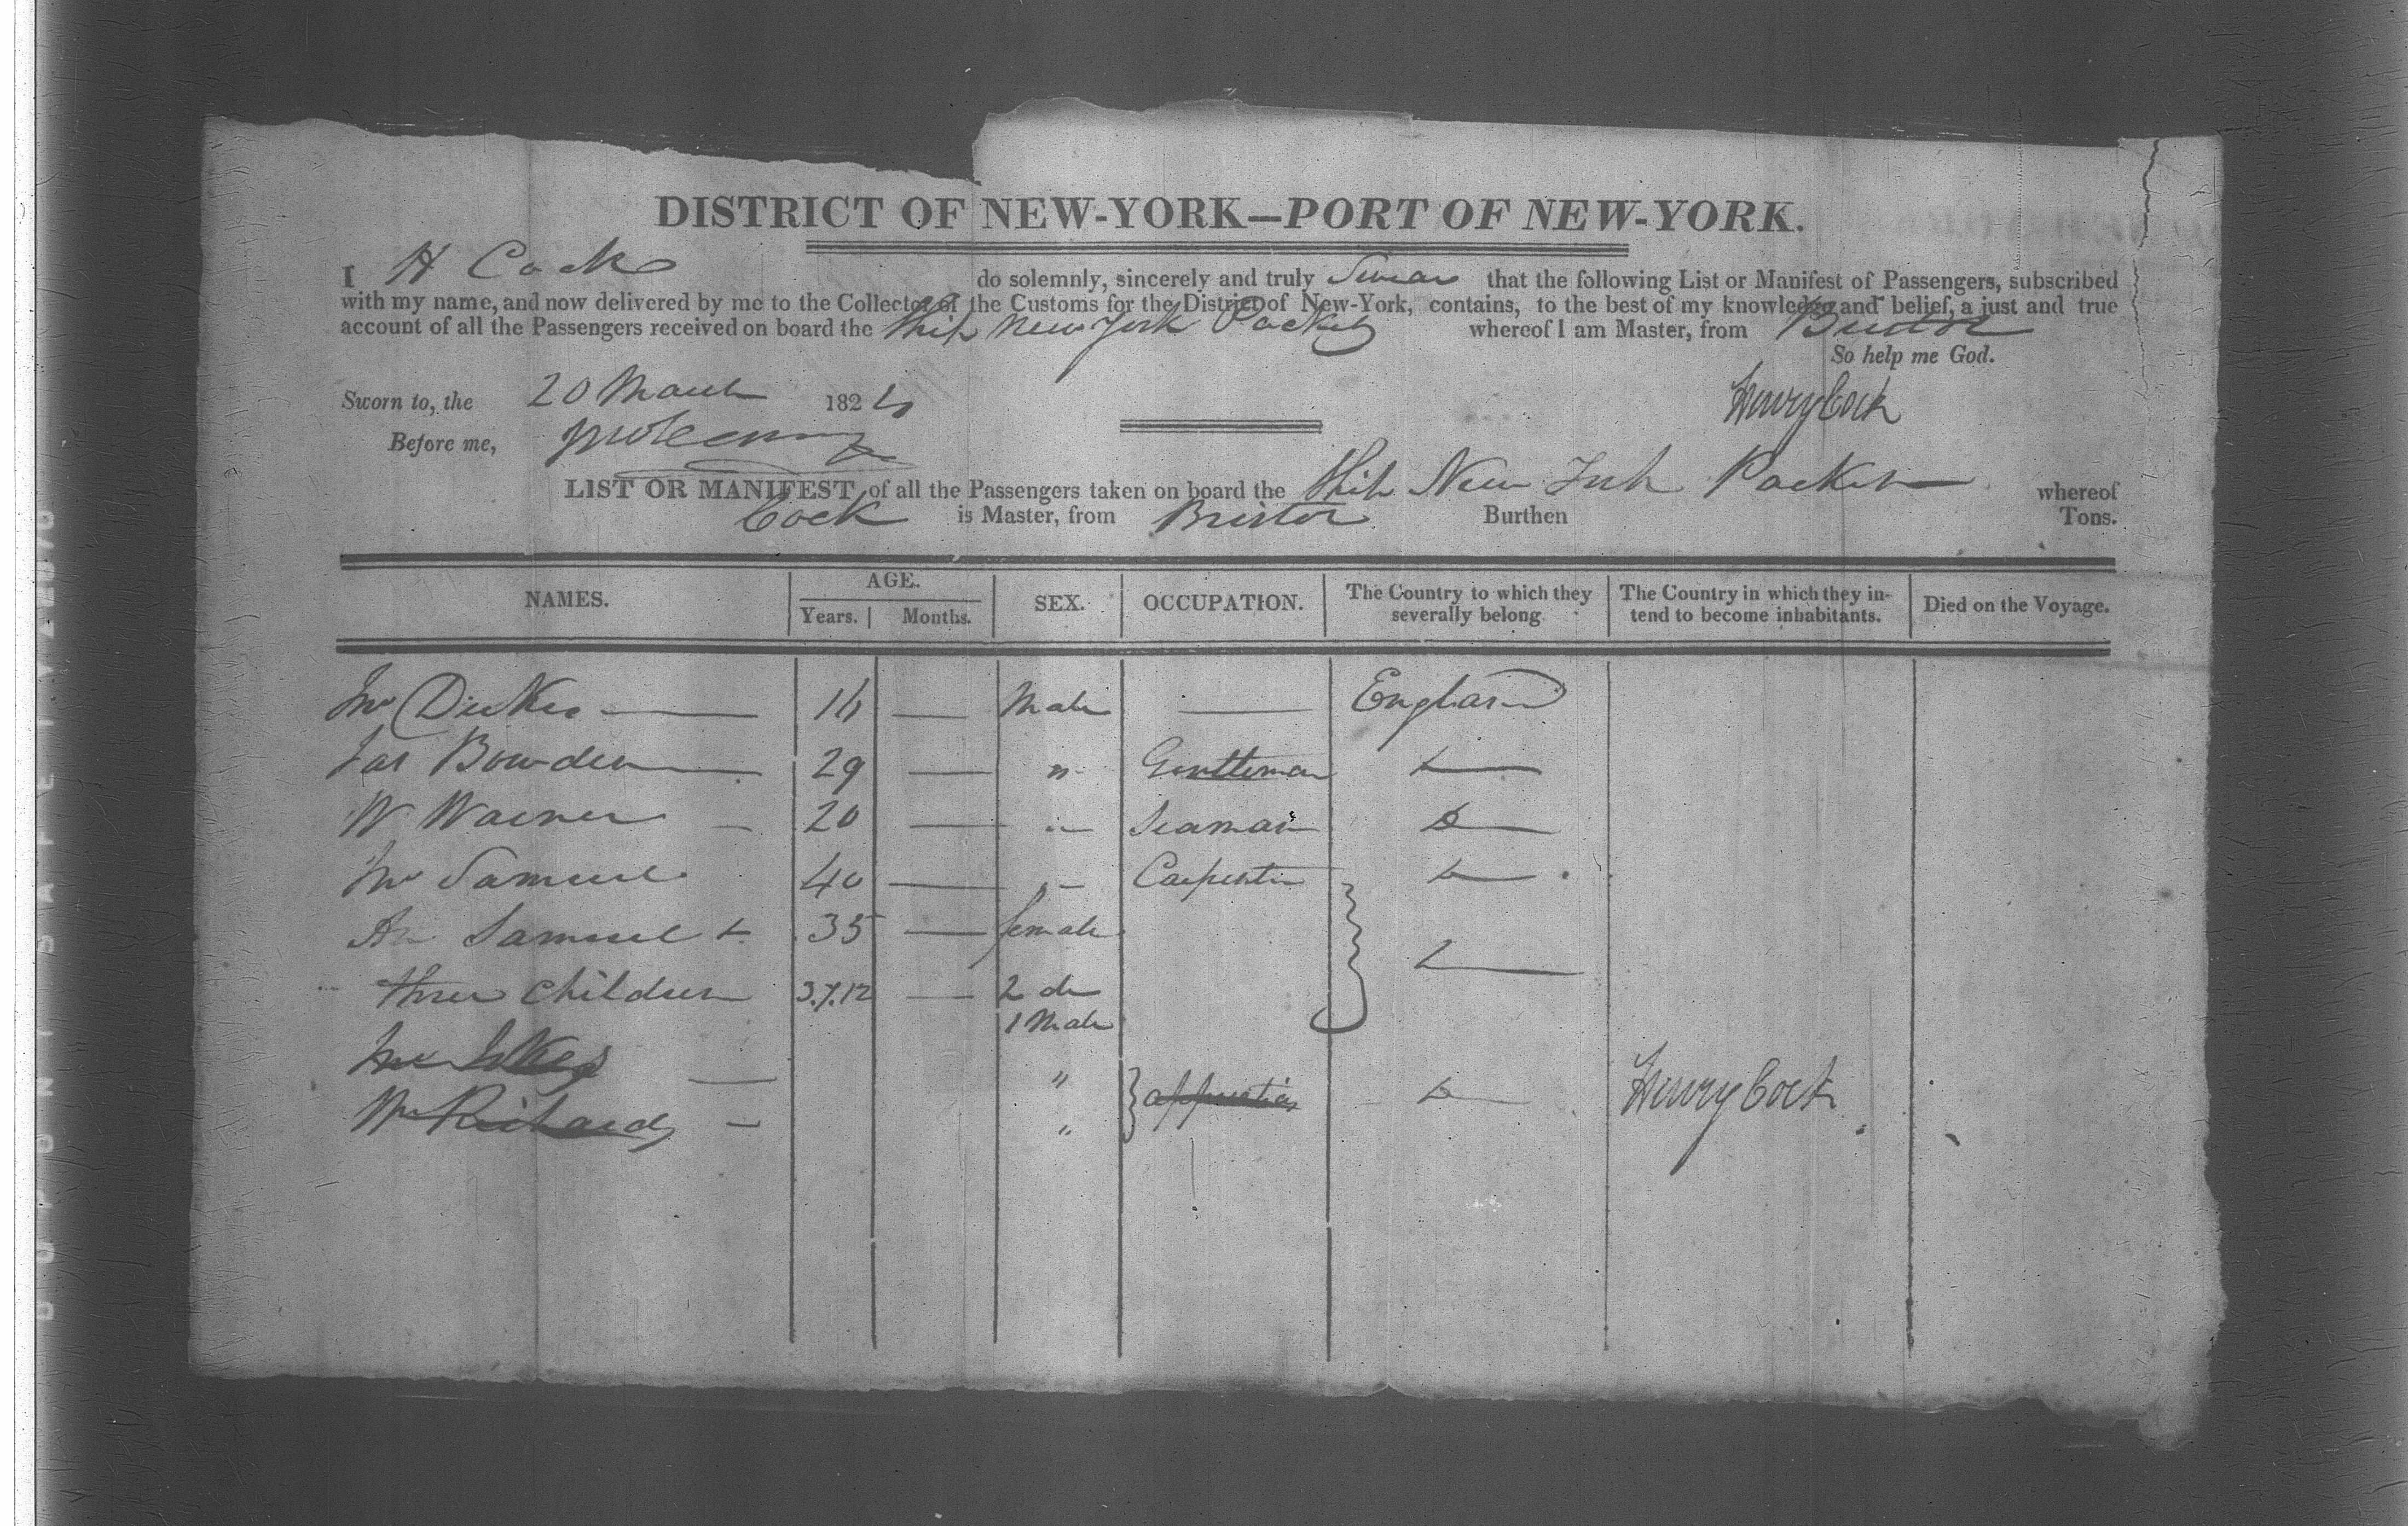 DISTRICT OF NEW-YORK—PORT OF NEW-YORK.
I H Cock do solemnly, sincerely and truly Swear that the following List or Manifest of Passengers, subscribed
with my name, and now delivered by me to the Collector of the Customs for the District of New-York, contains, to the best of my knowledge and belief, a just and true
account of all the Passengers received on board the Ship New York Packet whereof I am Master, from Bristol
So help me God.
Sworn to, the 20 March 182
Henry Cock
Before me,
LIST OR MANIFEST of all the Passengers taken on board the Ship New York Packet whereof
Cock is Master, from Bristol Burthen Tons.
NAMES. AGE. SEX. OCCUPATION. The Country to which they severally belong The Country in which they intend to become inhabitants. Died on the Voyage.
Years. Months.
Male England
Jas Bowden 29 " Gentleman
W Warner 20 " Seaman Do
Samuel 40 " Carpenter
Samuel 35 female
three children 3.7.12 2 do
1 Male
"
Wm Richards " Henry Cock